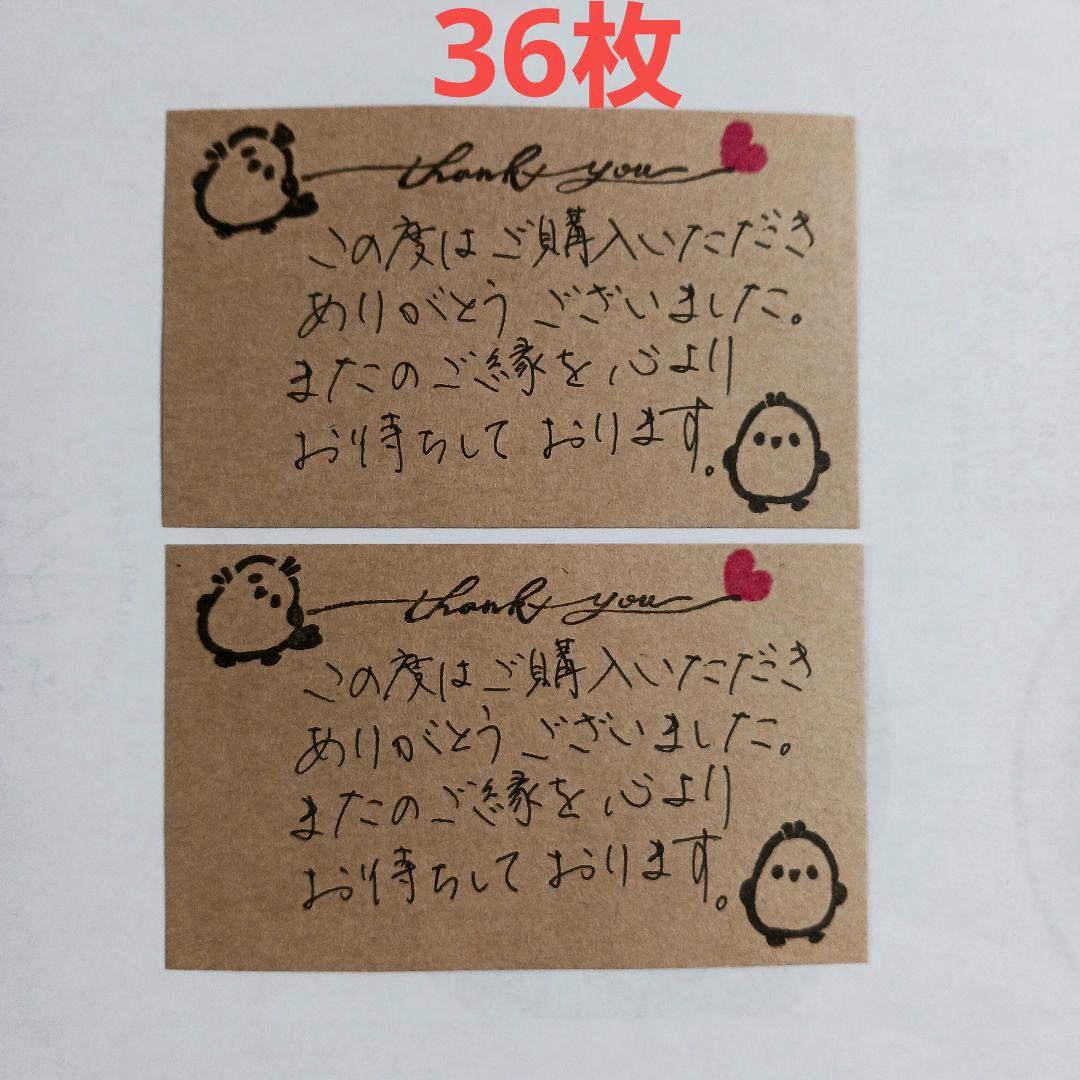 36枚
thank you
この度はご購入いただき
ありがとうございました。
またのご縁を心より
お待ちしております。
thank you
この度はご購入いただき
ありがとうございました。
またのご縁を心より
お待ちしております。